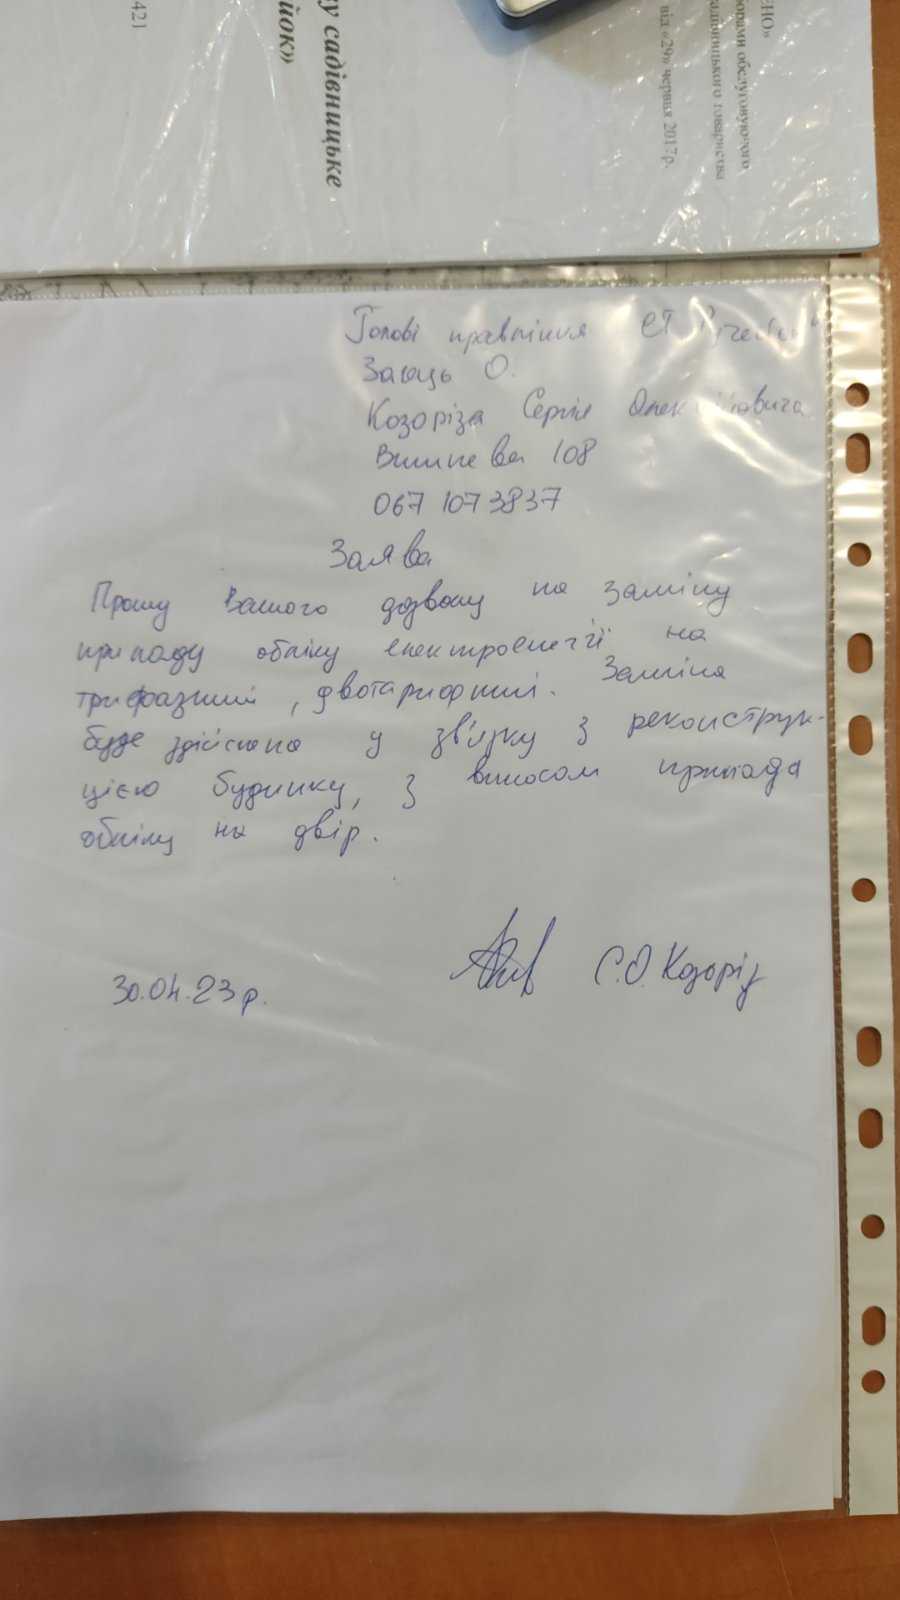 421
у садівницьке
йок»
ЕНО»
борами обслуговуючого
садівницького товариства
від «29» червня 2017р.
Голові правління СТ
Заяць О.
Козоріза Сергія Олексійовича
Вишнева 108
067 107 3837
Заява
Прошу Вашого дозволу на заміну
приладу обліку електроенегії на
трифазний, двотарифний. Заміна
буде здійснена у зв'язку з реконструк-
цією будинку, з виносом прилада
обліку на двір.
30.04.23р.
С.О. Козоріз